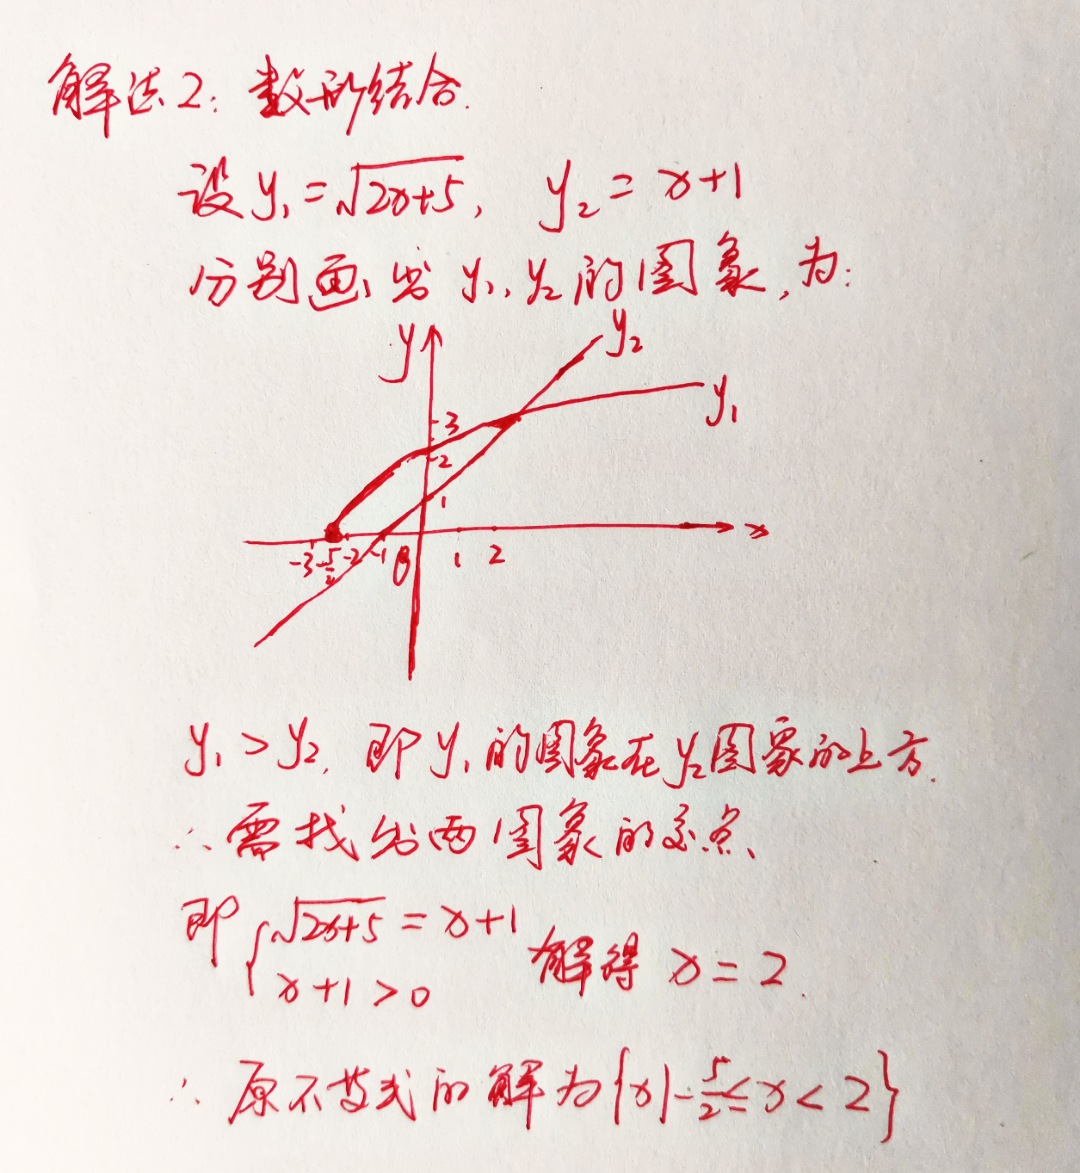 解法2：数形结合.
设y₁=√(2x+5)，y₂=x+1
分别画出y₁、y₂的图象，为：
y
y₂
y₁
3
2
1
-3 -5/2 -2 -1 0 1 2 x
y₁>y₂，即y₁的图象在y₂图象的上方.
∴需找出两图象的交点、
即{√(2x+5)=x+1
x+1>0 解得x=2.
∴原不等式的解为{x|-5/2≤x<2}